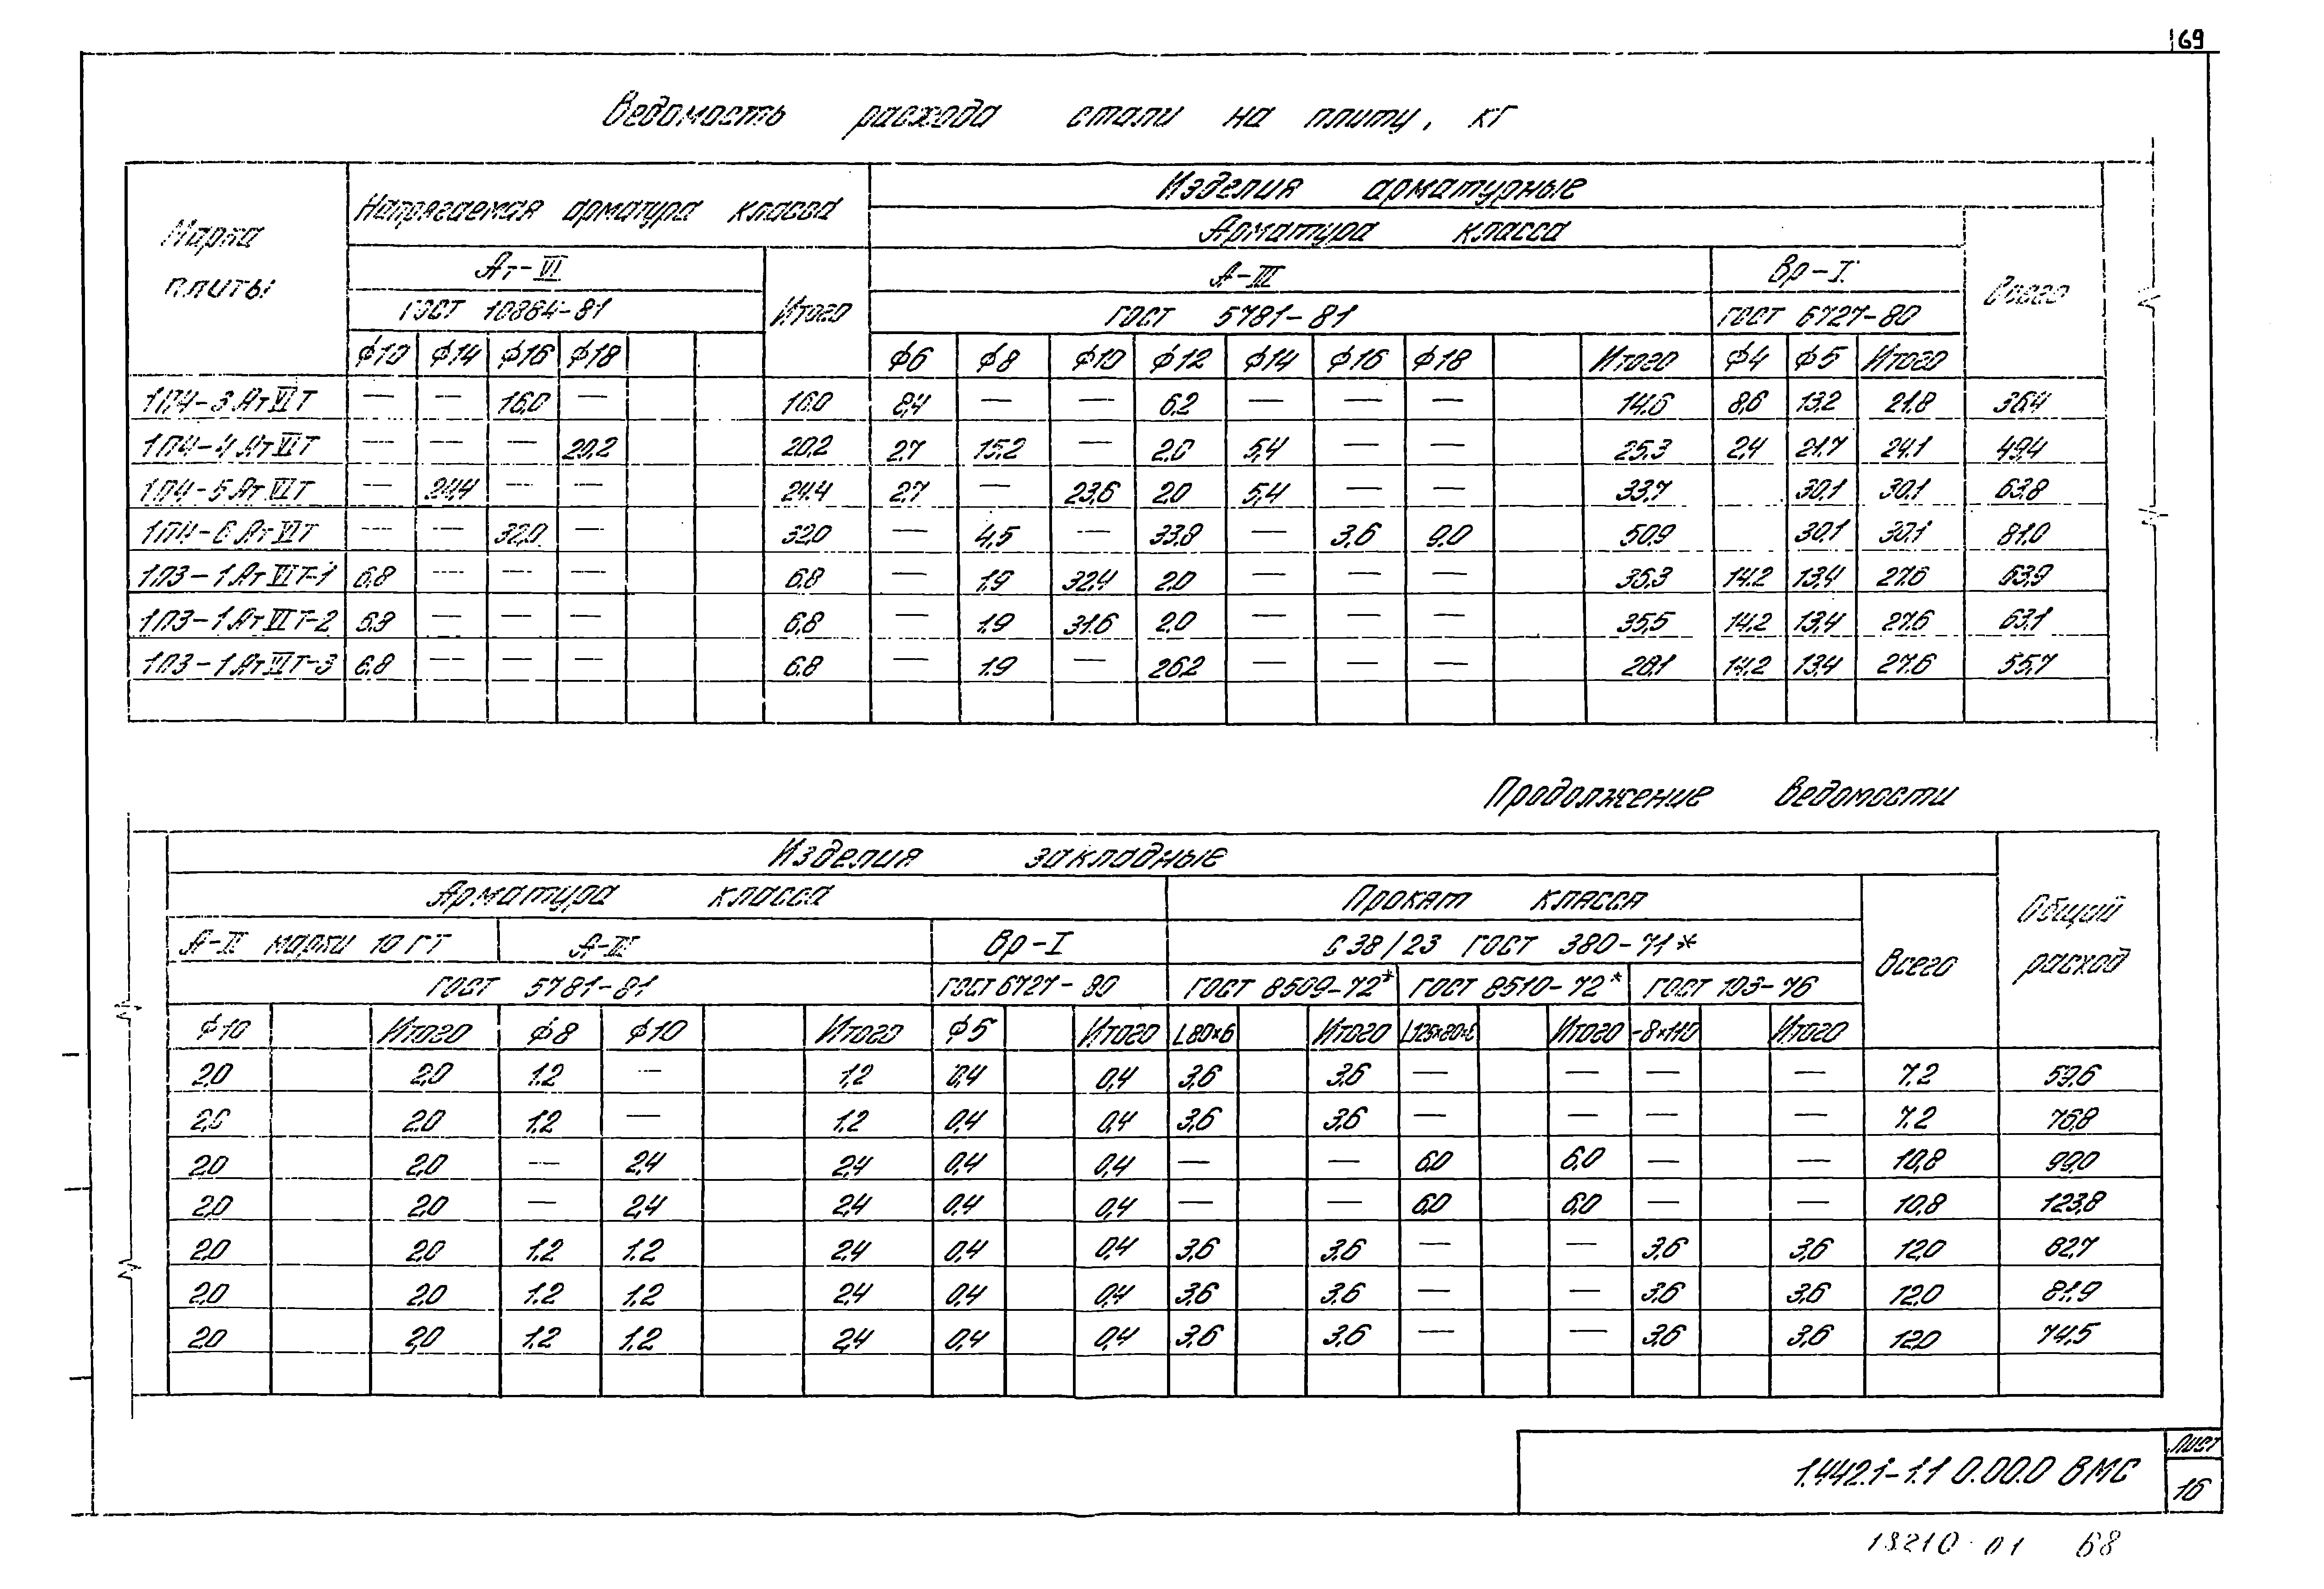 169
Ведомость расхода стали на плиту, кг
Марка плиты
Напрягаемая арматура класса
Изделия арматурные
Арматура класса
Ат-VI
Итого
А-III
Вр-I
Всего
ГОСТ 10884-81
ГОСТ 5781-81
ГОСТ 6727-80
ф10 ф14 ф16 ф18 ф6 ф8 ф10 ф12 ф14 ф16 ф18 Итого ф4 ф5 Итого
1П4-3 АтVIТ — — 16,0 — 16,0 8,4 6,2 — — — 14,6 8,6 13,2 21,8 36,4
1П4-4 АтVIТ — — — 20,2 20,2 2,7 15,2 — 2,0 5,4 — — 25,3 2,4 21,7 24,1 49,4
1П4-5 АтVIТ — 24,4 — — 24,4 2,7 — 23,6 2,0 5,4 — — 33,7 30,1 30,1 63,8
1П4-6 АтVIТ — — 32,0 — 32,0 — 4,5 — 33,8 — 3,6 9,0 50,9 30,1 30,1 81,0
1П3-1 АтVIТ-1 6,8 — — — 6,8 — 1,9 32,4 2,0 — — — 36,3 14,2 13,4 27,6 63,9
1П3-1 АтVIТ-2 6,8 — — — 6,8 — 1,9 31,6 2,0 — — — 35,5 14,2 13,4 27,6 63,1
1П3-1 АтVIТ-3 6,8 — — — 6,8 — 1,9 — 26,2 — — — 28,1 14,2 13,4 27,6 55,7
Продолжение ведомости
Изделия закладные
Общий расход
Арматура класса
Прокат класса
Всего
А-II марки 10 ГТ
А-III
Вр-I
С 38/23 ГОСТ 380-71*
ГОСТ 5781-81
ГОСТ 6727-80
ГОСТ 8509-72*
ГОСТ 8510-72*
ГОСТ 103-76
ф10 Итого ф8 ф10 Итого ф5 Итого L80×6 Итого L125×80×8 Итого -8×110 Итого
2,0 2,0 1,2 — 1,2 0,4 0,4 3,6 3,6 — — — — 7,2 59,6
2,0 2,0 1,2 — 1,2 0,4 0,4 3,6 3,6 — — — — 7,2 76,8
2,0 2,0 — 2,4 2,4 0,4 0,4 — — 6,0 6,0 — — 10,8 99,0
2,0 2,0 — 2,4 2,4 0,4 0,4 — — 6,0 6,0 — — 10,8 123,8
2,0 2,0 1,2 1,2 2,4 0,4 0,4 3,6 3,6 — — 3,6 3,6 12,0 82,7
2,0 2,0 1,2 1,2 2,4 0,4 0,4 3,6 3,6 — — 3,6 3,6 12,0 81,9
2,0 2,0 1,2 1,2 2,4 0,4 0,4 3,6 3,6 — — 3,6 3,6 12,0 74,5
1.442.1-1.1 0.00.0 ВМС
Лист
16
18210-01 68